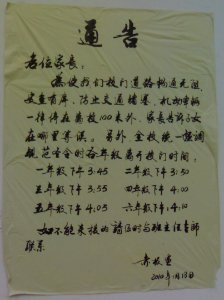 通告
各位家长:
为使我们校门道路畅通无阻,
安全有序,防止交通堵塞,机动车辆
一律停在离校100米外,家长告诉子女
在哪里等候。另外,全校统一强调
规范
各年级离开校门时间:
一年级下午3:45 二年级下午3:50
三年级下午3:55 四年级下午4:00
五年级下午4:05 六年级下午4:10
如不能来接的请及时与班主任老师
联系
2010年